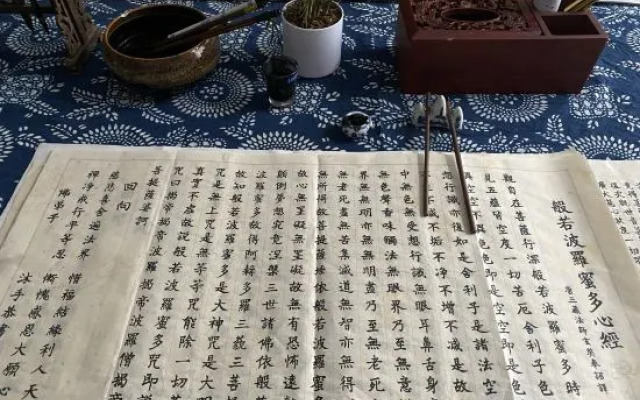 般若波羅蜜多心經
唐三藏法師玄奘奉詔譯
觀自在菩薩行深般若波羅蜜多時
見五蘊皆空度一切苦厄舍利子色
異空空不異色色即是空空即是色
想行識亦復如是舍利子是諸法空
不滅不垢不淨不增不減是故
中無色無受想行識無眼耳鼻舌身
無色聲香味觸法無眼界乃至無意
界無無明亦無無明盡乃至無老死
無老死盡無苦集滅道無智亦無得
故菩提薩埵依般若波羅蜜多
故心無罣礙無罣礙故無有恐怖遠
顛倒夢想究竟涅槃三世諸佛依般
波羅蜜多故得阿耨多羅三藐三菩
故知般若波羅蜜多是大神咒是大
咒是無上咒是無等等咒能除一切
真實不虛故說般若波羅蜜多咒即說
咒曰揭諦揭諦波羅揭諦波羅僧揭
菩提薩婆訶
回向
慈悲喜舍遍法界 惜福結緣利人天
禪淨戒行平等忍 慚愧感恩大願心
佛弟子 沐手恭書